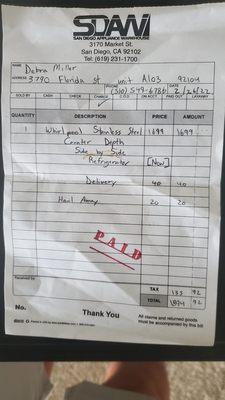 SDAW
SAN DIEGO APPLIANCE WAREHOUSE
3170 Market St.
San Diego, CA 92102
Tel: (619) 231-1700
NAME Debra Miller
ADDRESS 3790 Florida St unit A103 92104
PHONE (310) 579-6786 DATE 2/26/22
SOLD BY CASH CHECK CHARGE C.O.D. ON ACCT. PAID OUT LAYAWAY
QUANTITY DESCRIPTION PRICE AMOUNT
1 Whirlpool Stainless Steel 1699 1699
Counter Depth
Side by Side
Refrigerator [New]
Delivery 40 40
Haul Away 20 20
PAID
Received by
TAX 135 92
TOTAL 1894 92
No.
Thank You
All claims and returned goods
Must be accompanied by this bill